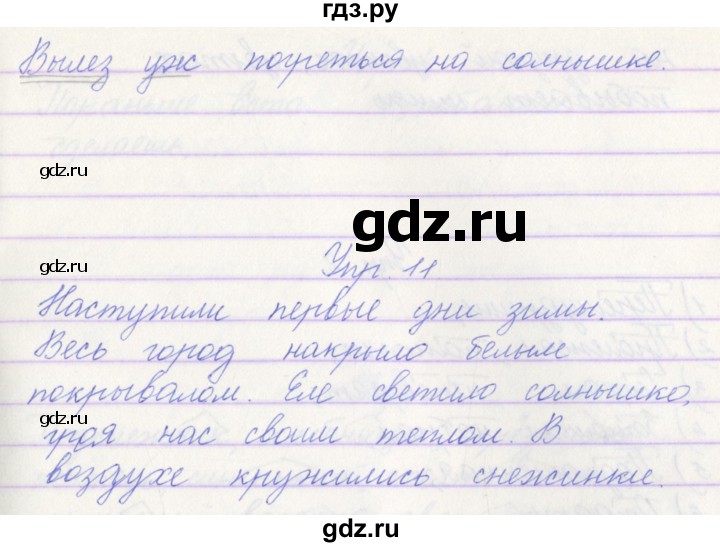 гдз.ру
Вылез уж погреться на солнышке.
gdz.ru
gdz.ru
gdz.ru
Упр. 11
Наступили первые дни зимы.
Весь город накрыло белым
покрывалом. Еле светило солнышко,
gdz.ru
грея нас своим теплом. В
воздухе кружились снежинки.
gdz.ru